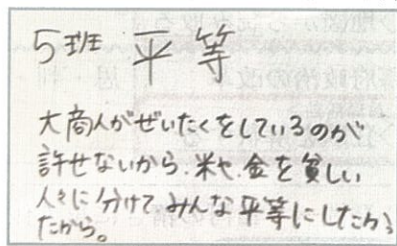 5班 平等
大商人がぜいたくをしているのが
許せないから、米や、金を貧しい
人々に分けて みんな平等にしたかっ
たから。